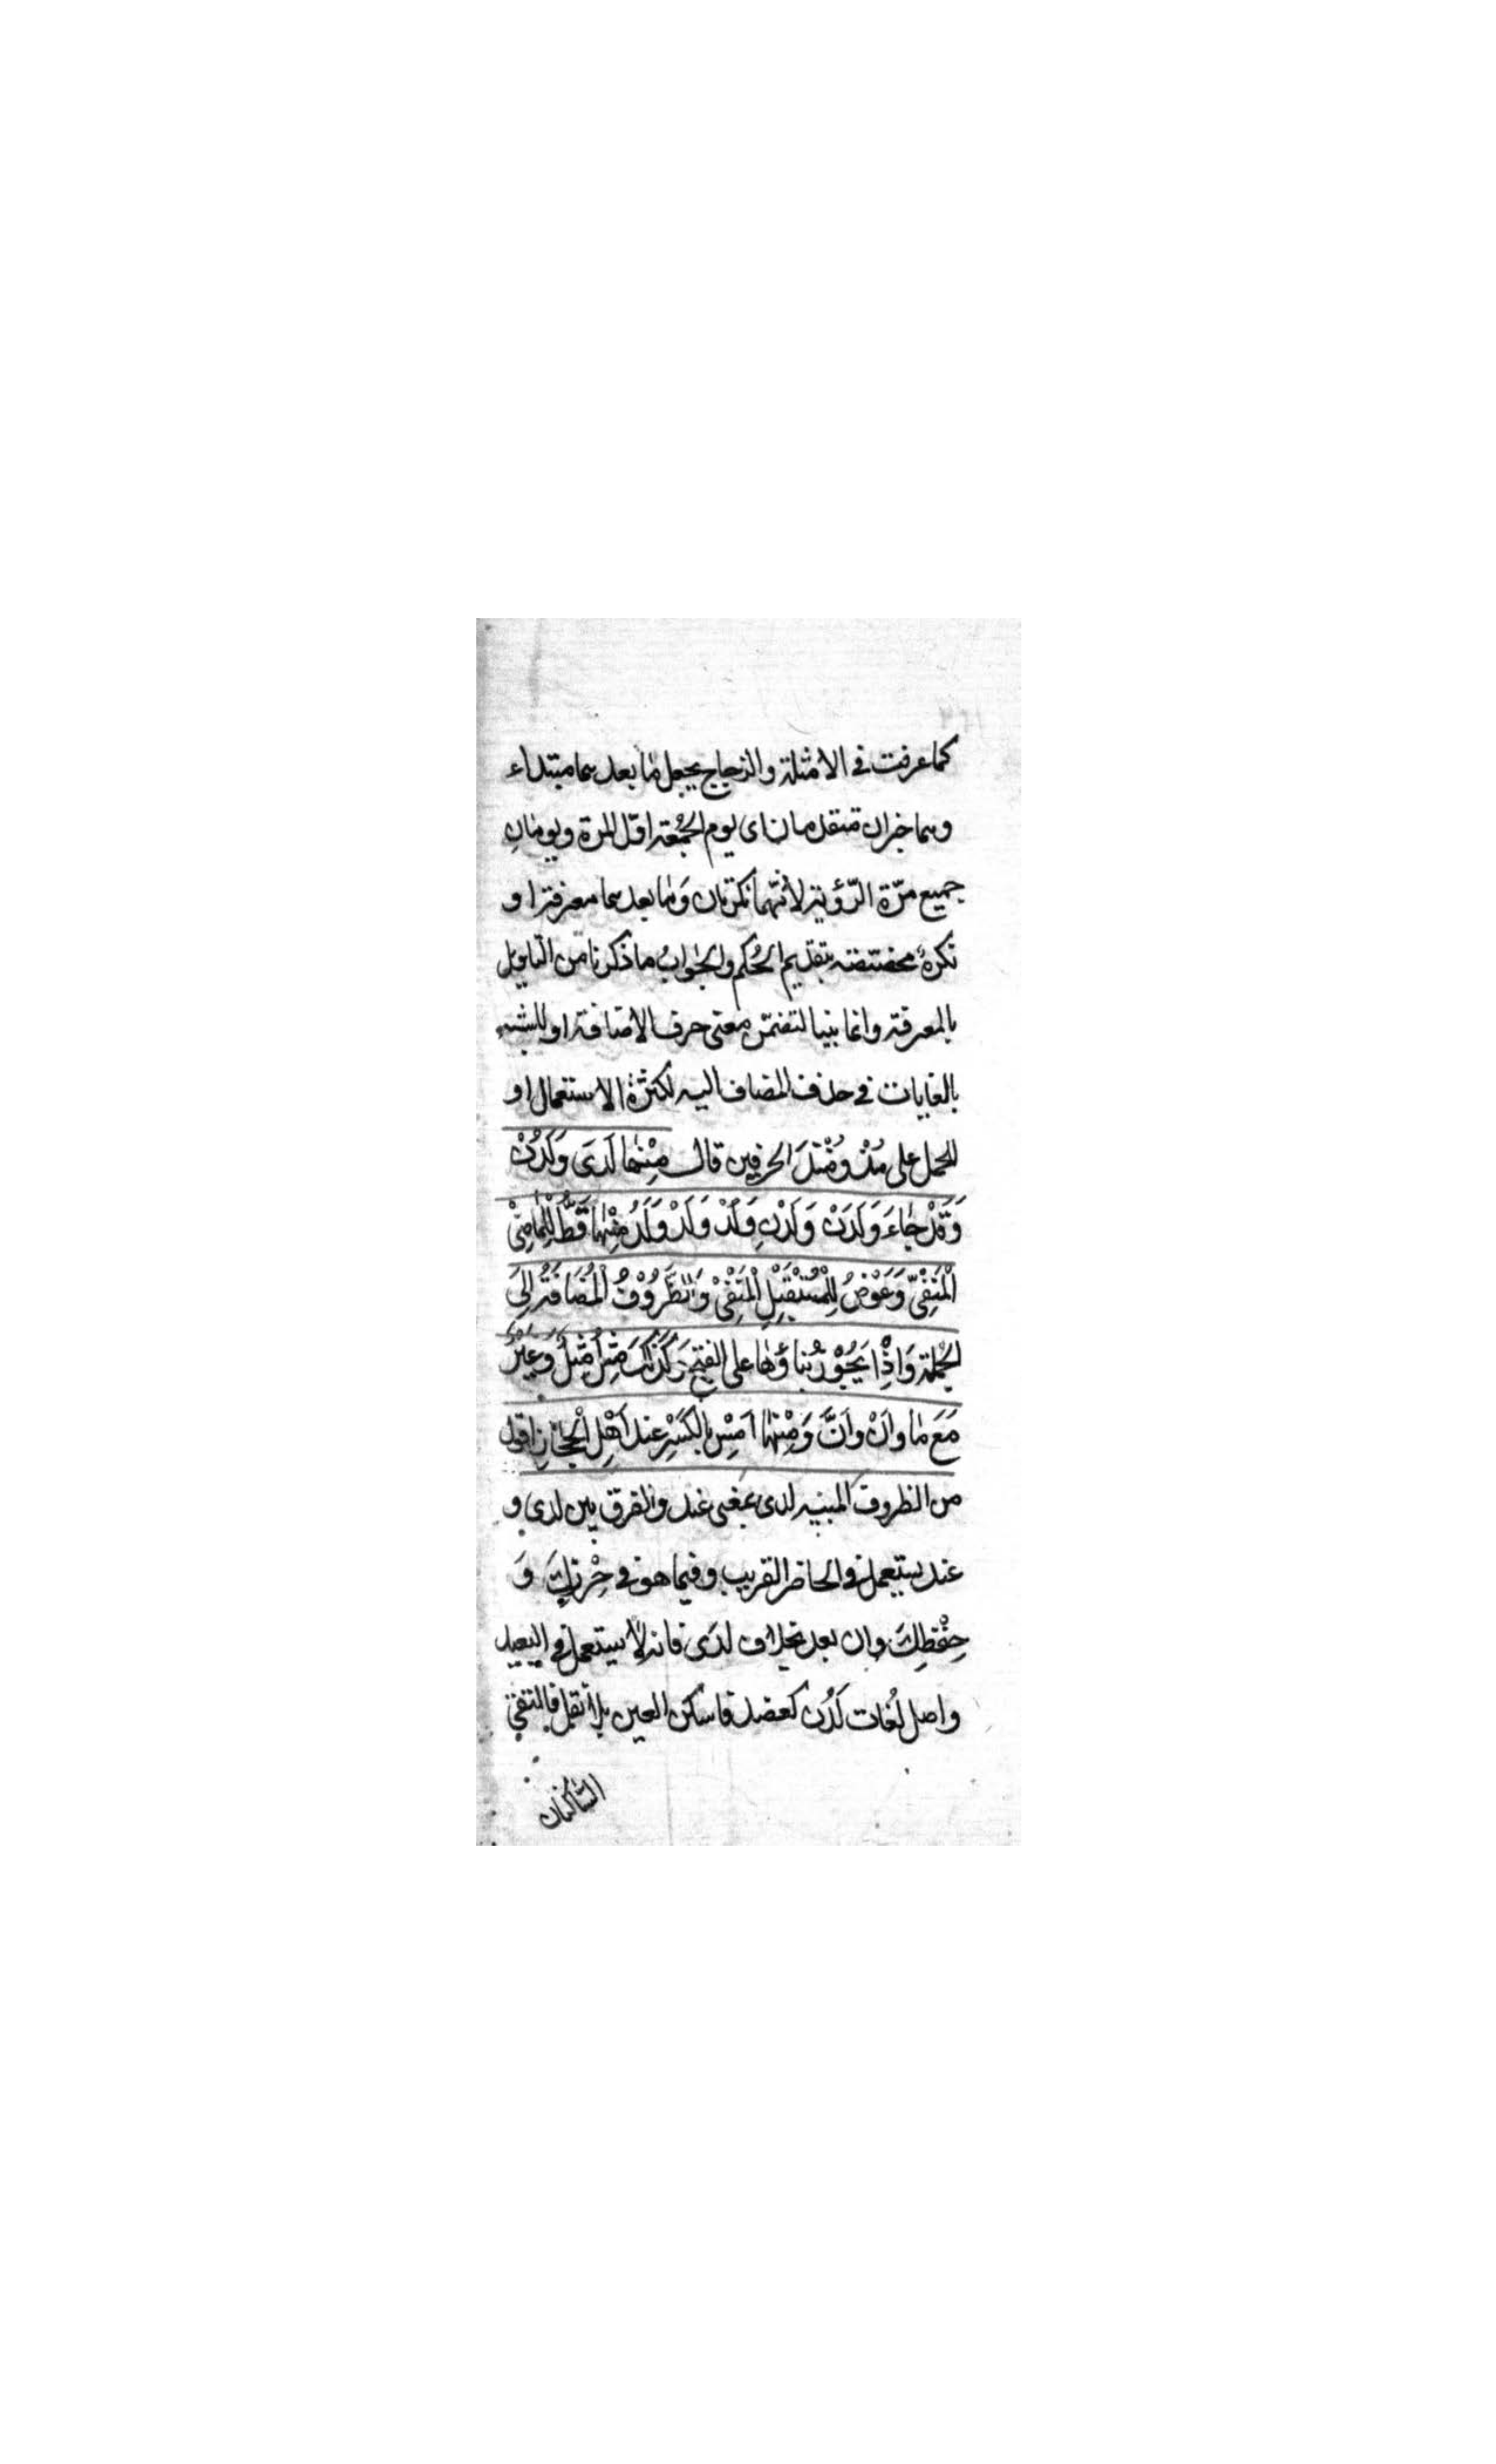 كما عرفت فى الامثلة والزجاج يجعل ما بعدهما مبتداء
وهما خبران متقدمان اى يوم الجُمُعة اوّل المدة ويومان
جميع مدّة الرّؤية لأنّهما نكرتان وَما بعدهما معرفة او
نكرةٌ مخصّصة بتقديم الحُكم والجوابُ ما ذكرنا من التاويل
بالمعرفة وانما بنيا لتضمّن معنى حرف الاضافة او للشبه
بالغايات فى حذف المضاف اليه لكثرة الاستعمال او
للحمل على مُذْ ومُنْذُ الحرفين قال مِنْها لَدَى وَلَدُنْ
وَقَدْ جاءَ وَلَدَنْ وَلَدْنِ وَلُدْ وَلَدْ وَلَدُ مِنْها قَطُّ لِلْماضِىْ
الْمَنْفِىّ وَعَوْضُ لِلْمُسْتَقْبِلِ الْمَنْفِىْ وَالظُّرُوْفُ الْمُضَافَةُ اِلىَ
الجُملة وَاِذْا يَجُوْزُ بُناؤُها على الفتح وَكَذٰلِكَ مِثْلُ وَغَيْرُ
مَعَ مٰا واَنْ واَنَّ وَمِنْهٰا اَمْسِ بالكَسْرِ عند اَهْلِ الْحِجٰازِ اقول
من الظروف المبنيه لدى بمعنى عند والفرق بين لدى و
عند يستعمل فى الحاضر القريب وفيما هو فى حِرْزِكَ وَ
حِفْظِكَ وان بعد بخلاف لدَى فانه لا يستعمل فى البعيد
واصل لُغات لَدُن كعضد فاسكن العين فالتقى
الساكنان